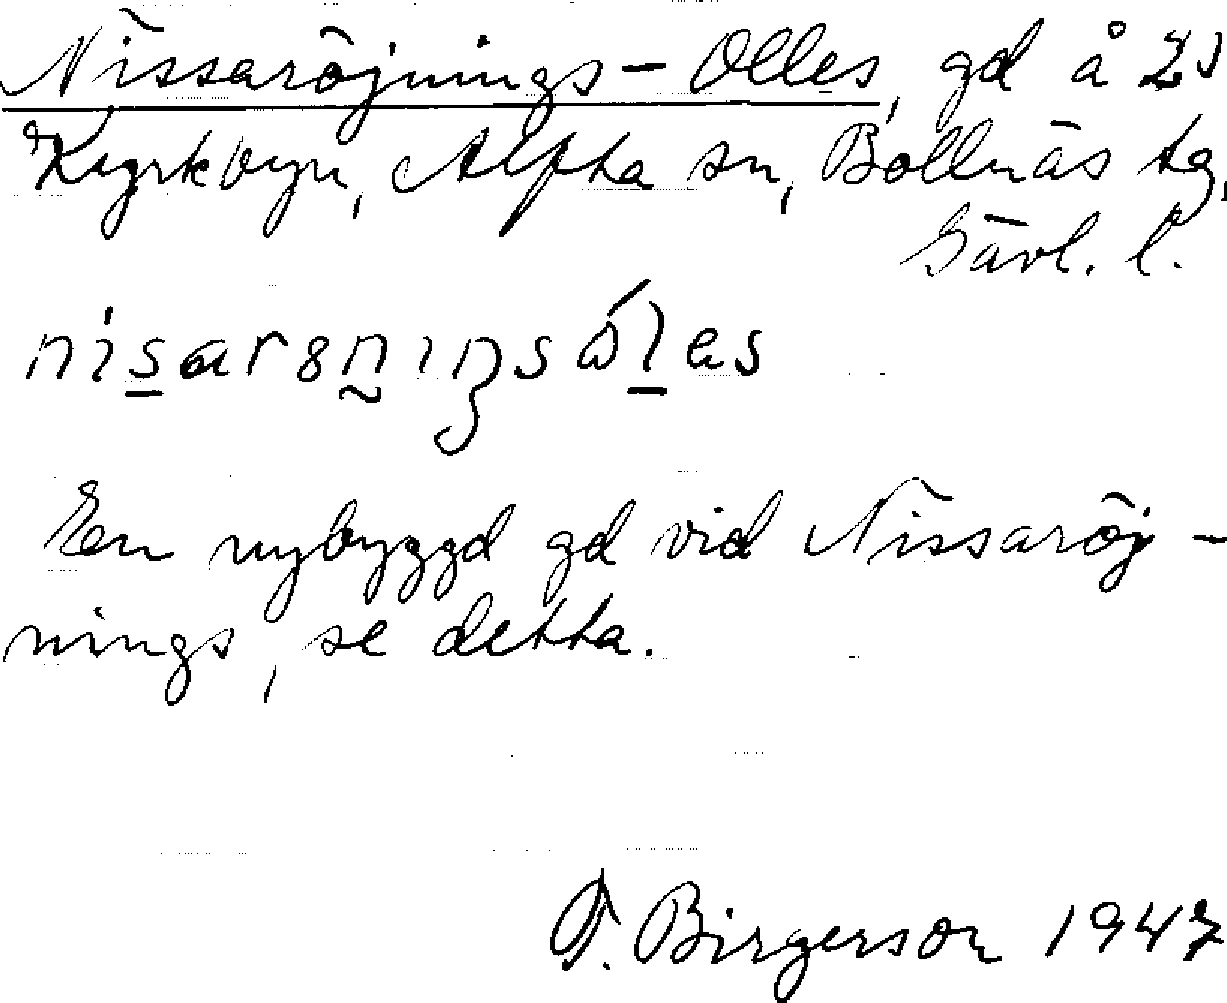 Nissaröjnings-Olles, gd å 2s
Kyrkbyn, Alfta sn, Bollnäs tg,
Gävl. l.
En nybyggd gd vid Nissaröj-
nings, se detta.
F. Birgerson 1947